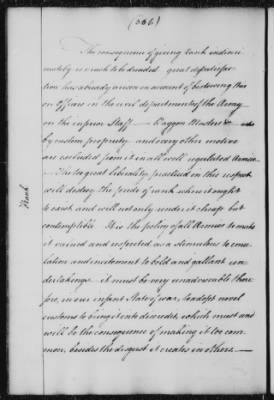 (556)
The consequence of giving rank indiscri-
minately is much to be dreaded great dissatisfac-
tion has already arisen on account of bestowing this
on Officers in the civil departments of the Army
on the inferior Staff — Waggon Masters &c
by custom, propriety and every other motive
are excluded from it in all well regulated Armies
— The too great liberality practised in this respect
will destroy the pride of rank where it ought
to exist and will not only render it cheap but
contemptible It is the policy of all Armies to make
it valued and respected as a stimulus to emu-
lation and incitement to bold and gallant un-
dertakings it must be very unadviseable there-
fore, in our infant State of war, to adopt novel
customs to bring it into discredit, which must and
will be the consequence of making it too com-
mon, besides the disgust it creates in others. —
Rank